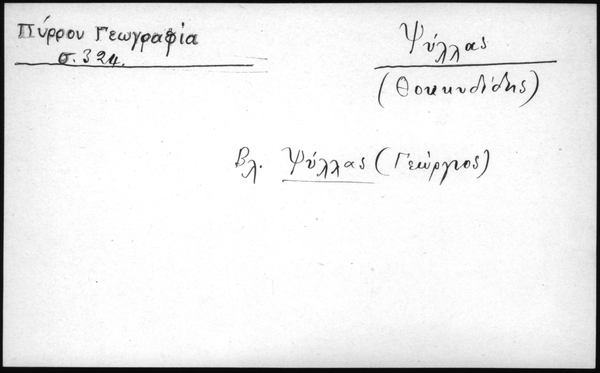 Πύρρου Γεωγραφία
σ. 324.
Ψύλλας
(Θουκυδίδης)
Βλ. Ψύλλας (Γεώργιος)